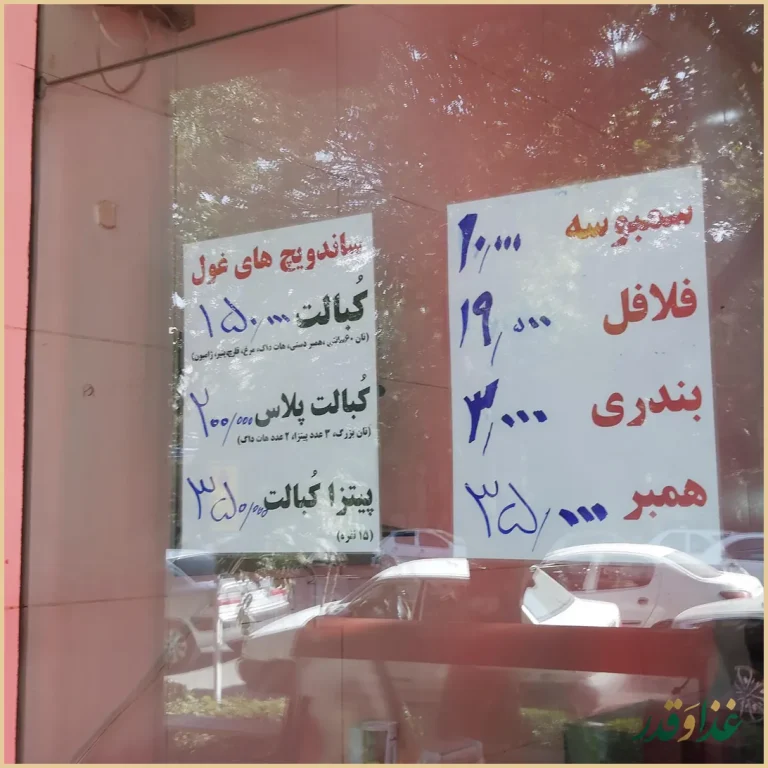 سمبوسه ۱۰,۰۰۰
فلافل ۱۹,۰۰۰
بندری ۳,۰۰۰
همبر ۳۵,۰۰۰
ساندویچ های غول
کُبالت ۱۵۰,۰۰۰
(نان ۶۰سانتی، همبر دستی، هات داگ، مرغ، قارچ پنیر، ژامبون)
کُبالت پلاس ۲۰۰,۰۰۰
(نان بزرگ، ۳ عدد پیتزا، ۲ عدد هات داگ)
پیتزا کُبالت ۳۵۰,۰۰۰
(۱۵ نفره)
غذا وَ قدر